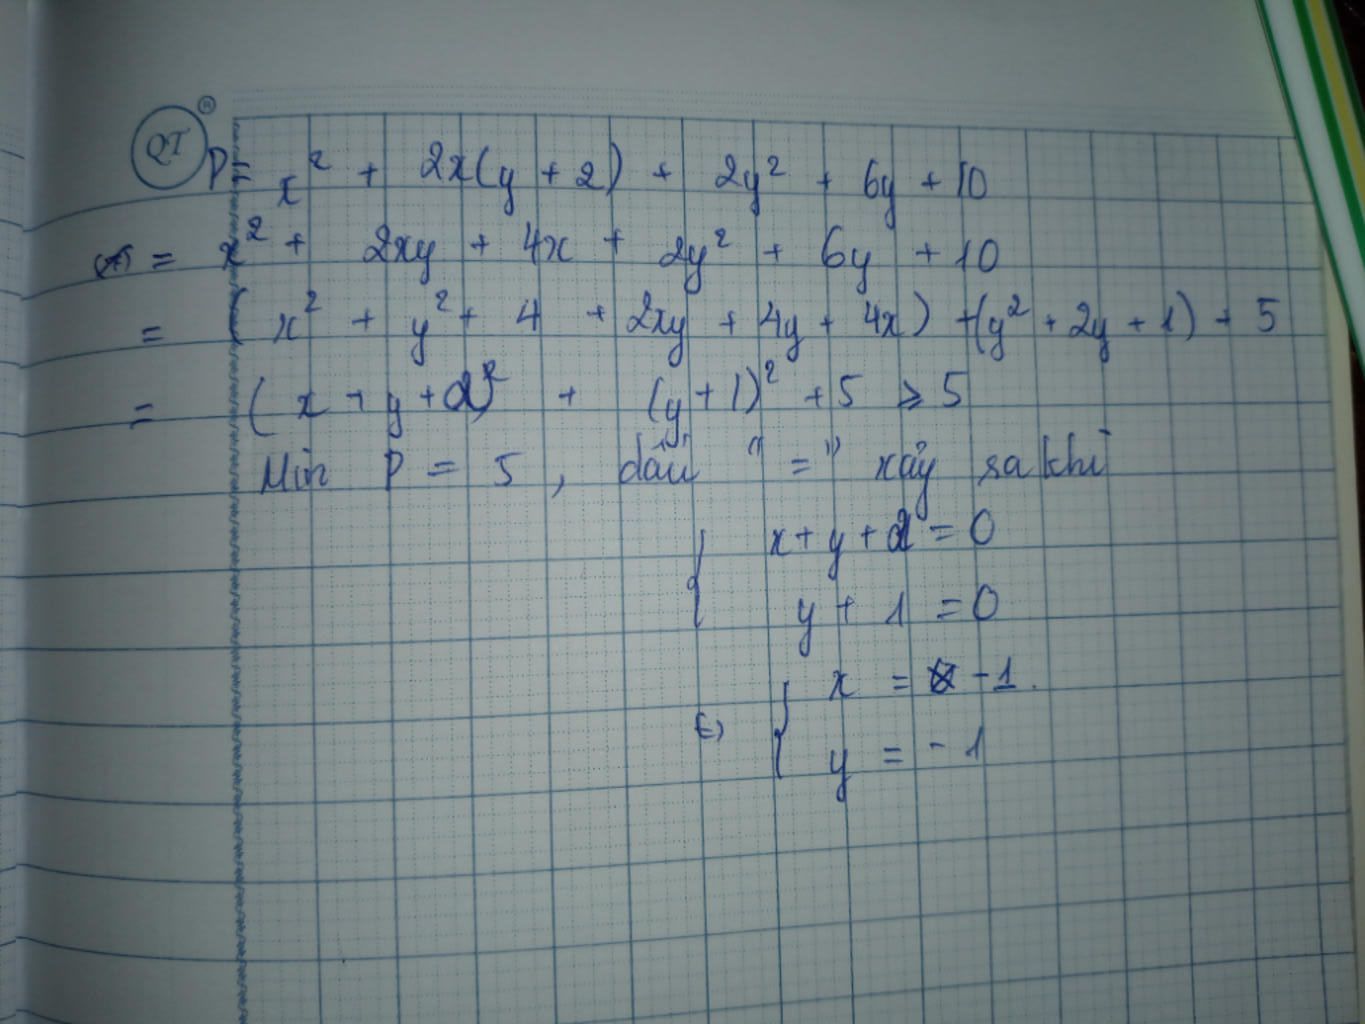 QT
P = x² + 2x(y + 2) + 2y² + 6y + 10
= x² + 2xy + 4x + 2y² + 6y + 10
= (x² + y² + 4 + 2xy + 4y + 4x) + (y² + 2y + 1) + 5
= (x + y + 2)² + (y + 1)² + 5 ⩾ 5
Min P = 5, dấu "=" xảy ra khi
{ x + y + 2 = 0
y + 1 = 0
⇔ { x = -1.
y = -1